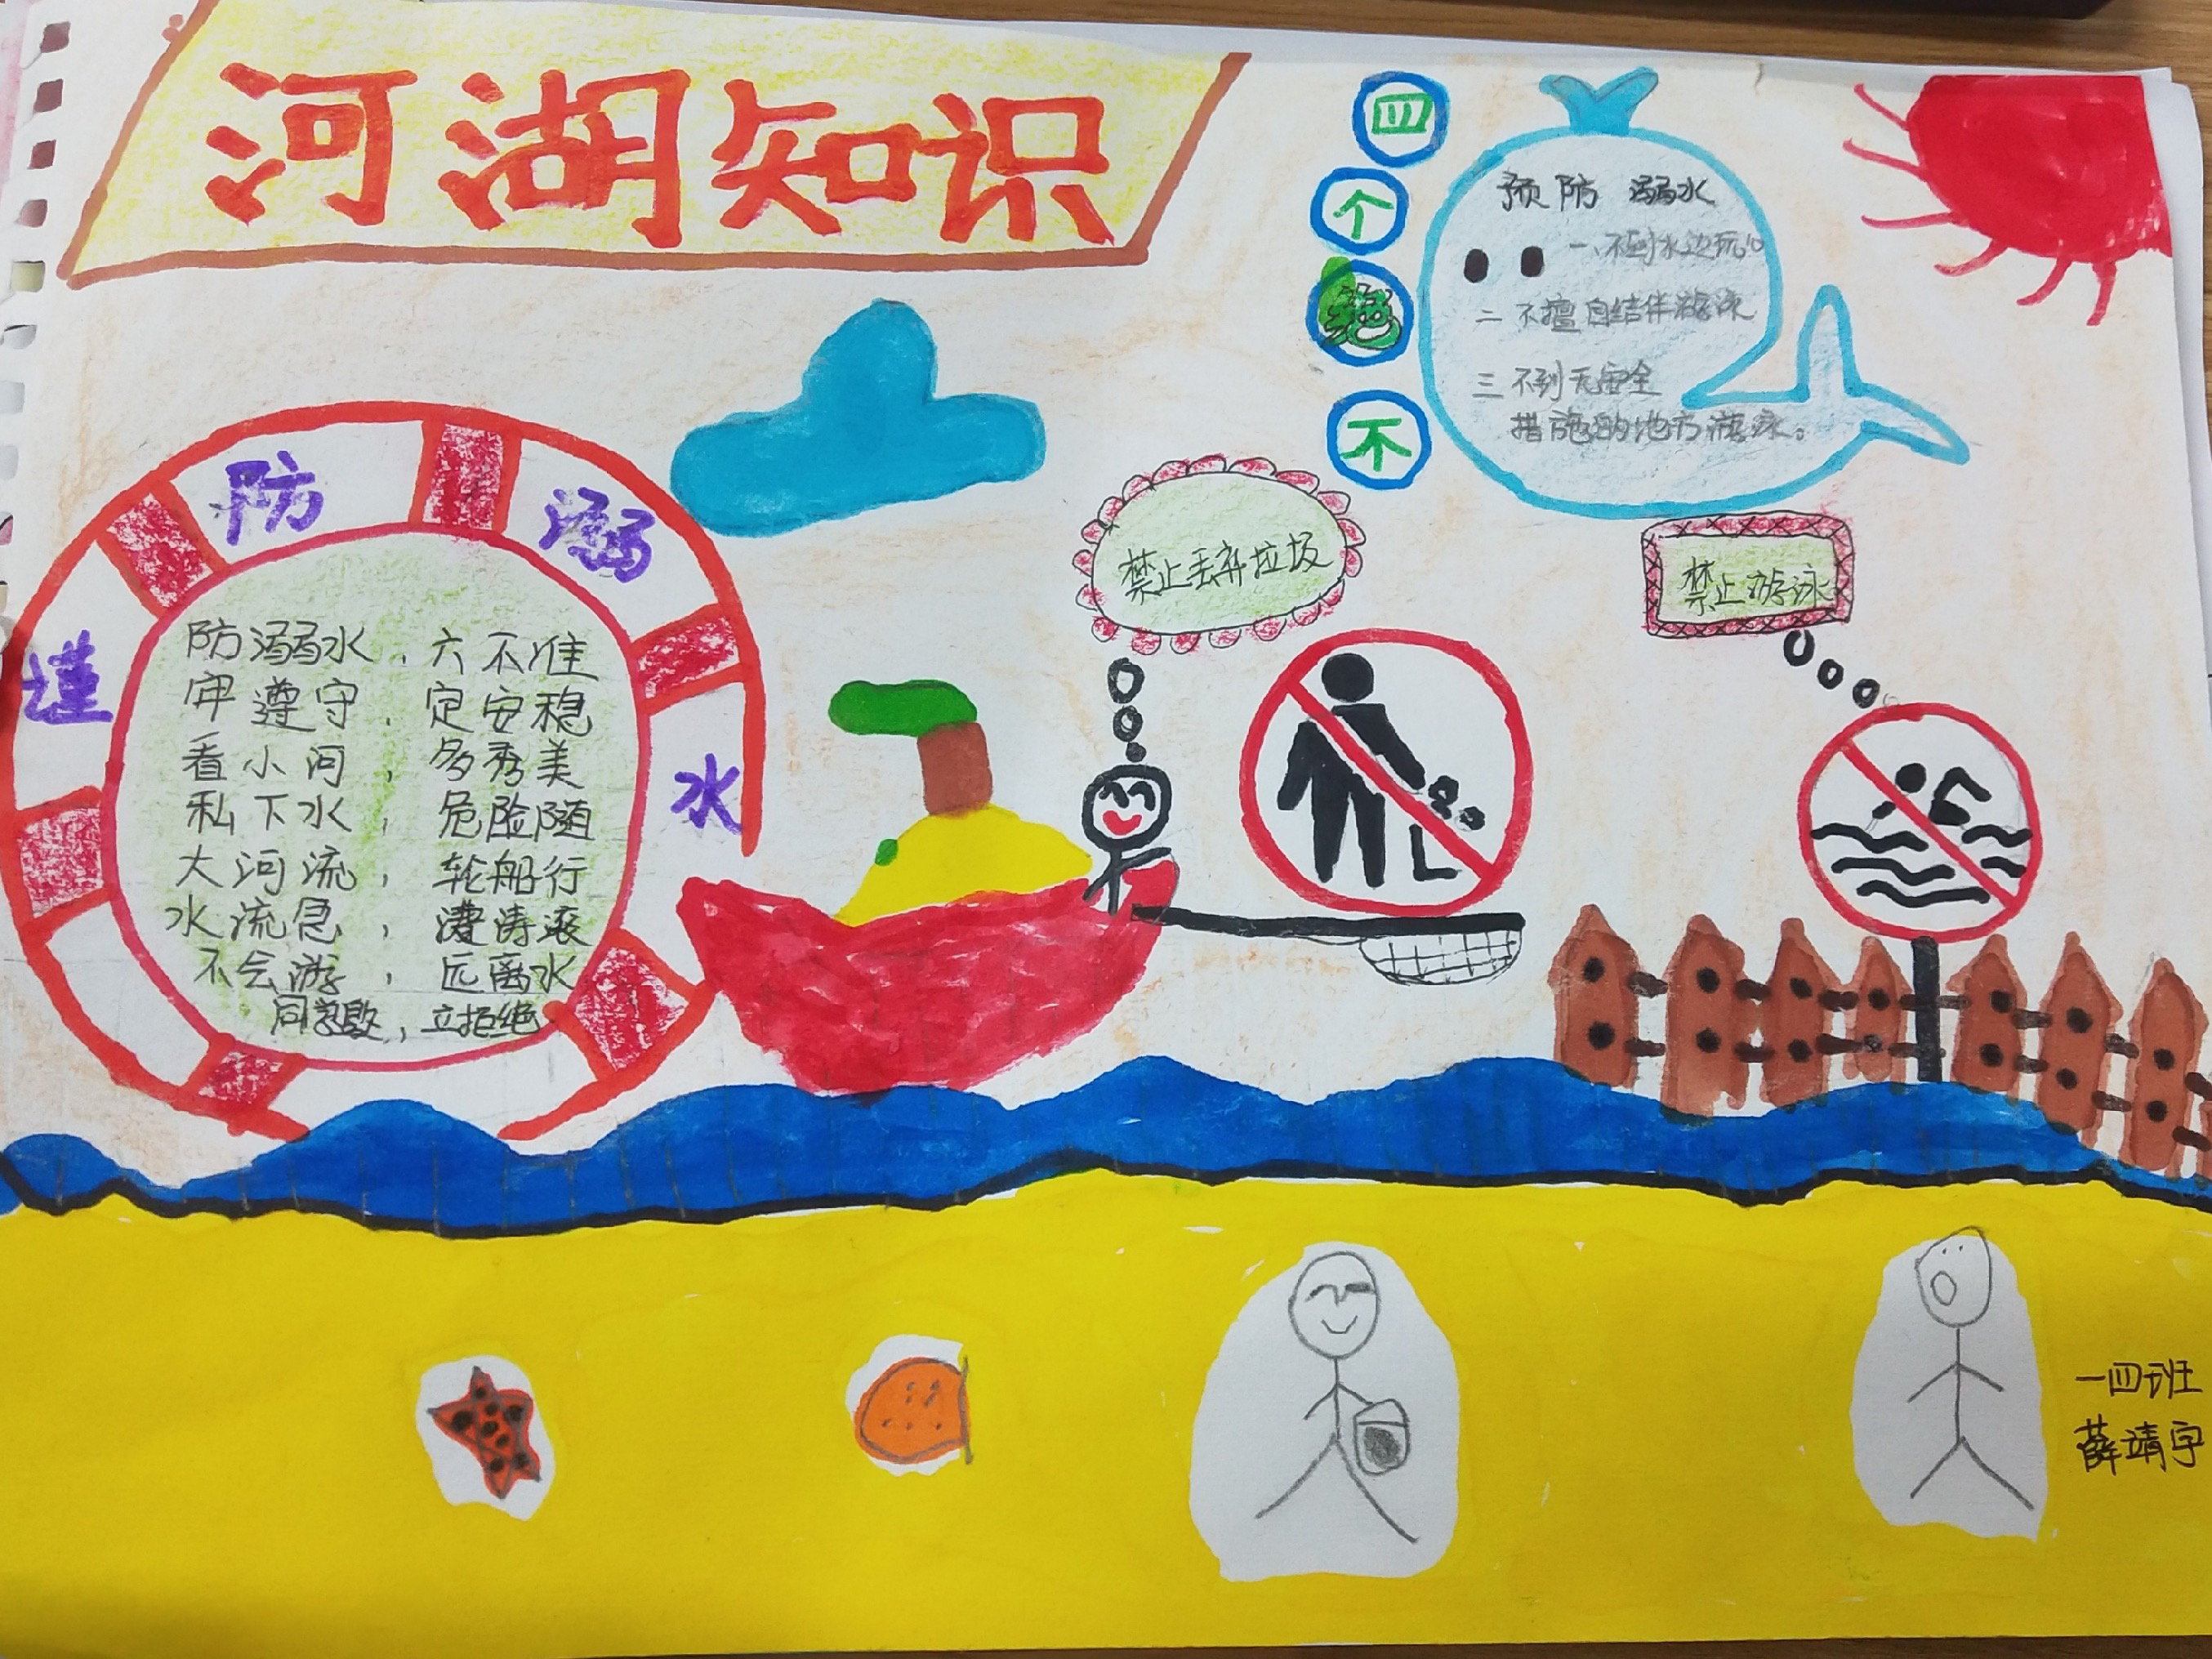 河湖知识
四
个
绝
不
预防 溺水
一、不到水边玩
二 不擅自结伴游泳
三 不到无安全
措施的地方游泳。
谨 防 溺 水
防溺水，六不准
牢遵守，定安稳
看小河，多秀美
私下水，危险随
大河流，轮船行
水流急，涛滚
不会游，远离水
同邀，立拒绝
禁止丢弃垃圾
禁止游泳
一四班
薛靖宇